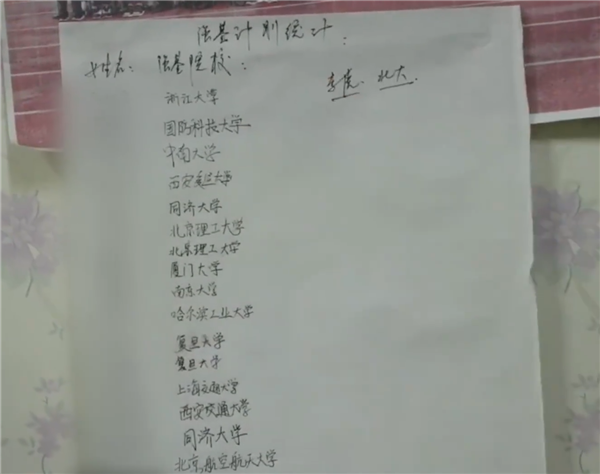 强基计划统计：
姓名： 强基院校：
北大
浙江大学
国防科技大学
中南大学
西安交通大学
同济大学
北京理工大学
北京理工大学
厦门大学
南京大学
哈尔滨工业大学
复旦大学
复旦大学
上海交通大学
西安交通大学
同济大学
北京航空航天大学